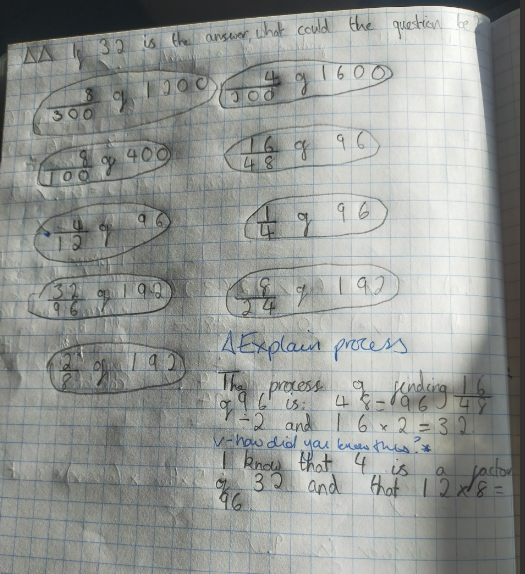 ΔΔ If 32 is the answer, what could the question be
8/300 of 1200 4/200 of 1600
8/100 of 400 16/48 of 96
4/12 of 96 1/4 of 96
32/96 of 192 8/24 of 192
2/8 of 192
Δ Explain process
The process of finding 16/48
of 96 is: 48 = 96
÷ 2 and 16 x 2 = 32
how did you know this? *
I know that 4 is a factor
of 32 and that 12 x 8 =
96.